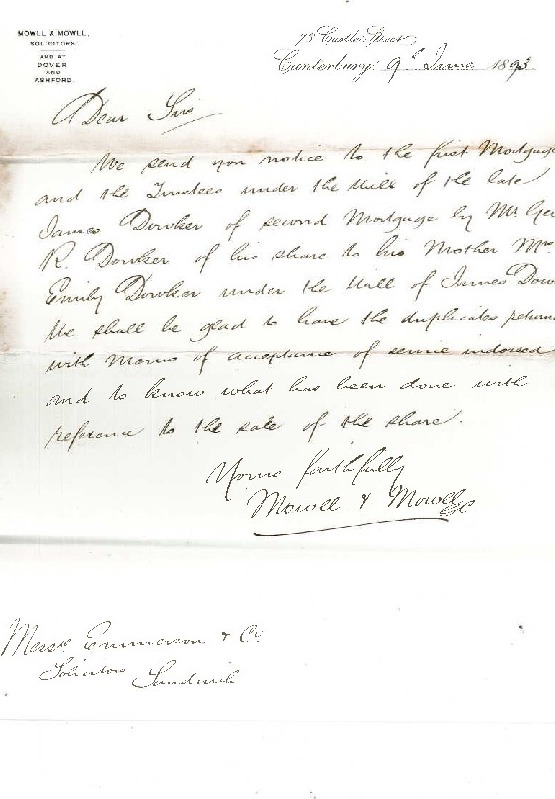 MOWLL & MOWLL,
SOLICITORS.
AND AT
DOVER
AND
ASHFORD.
Castle Street,
Canterbury. 9th June 1893
Dear Sirs
We send you notice to the first Mortgage
and the Trustees under the Will of the late
James Dowker of second Mortgage by Mr Geo
R. Dowker of his share to his Mother Mrs
Emily Dowker under the Will of James Dow
We shall be glad to have the duplicates return
with Memo of acceptance of service indorsed
and to know what has been done with
reference to the sale of the share.
Yours faithfully
Mowll & Mowll
Messrs. Emmerson & Co.
Solicitors
Sandwich